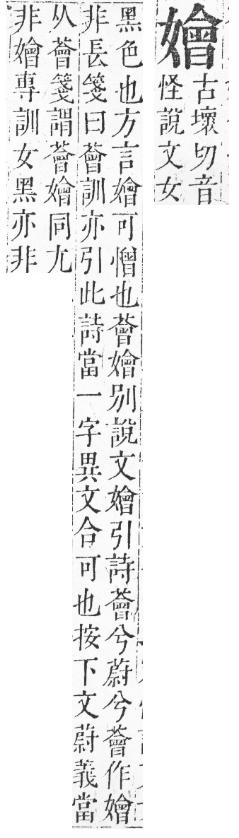 嬒
古壞切音
怪說文女
黑色也方言嬒可憎也薈嬒別說文嬒引詩薈兮蔚兮薈作嬒
非長箋曰薈訓亦引此詩當一字異文合可也按下文蔚義當
从薈箋謂薈嬒同尤
非嬒專訓女黑亦非